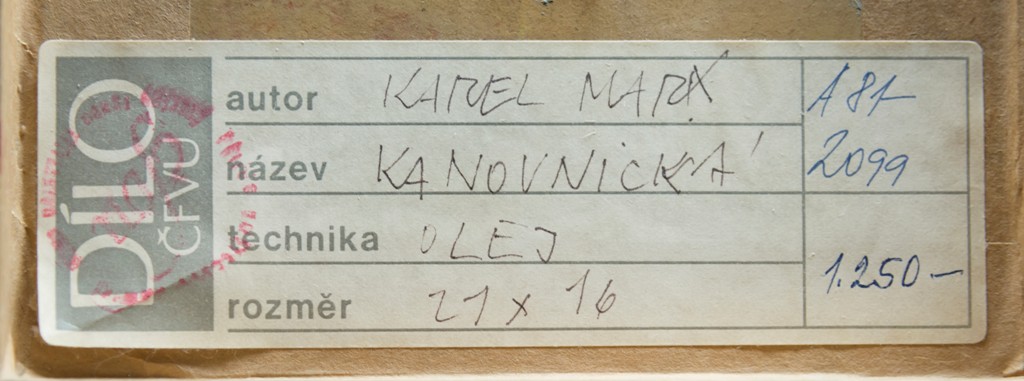 DÍLO
ČFVU
autor KAREL MARX A 81-
název KANOVNICKÁ 2099
technika OLEJ
rozměr 21 x 16 1.250-